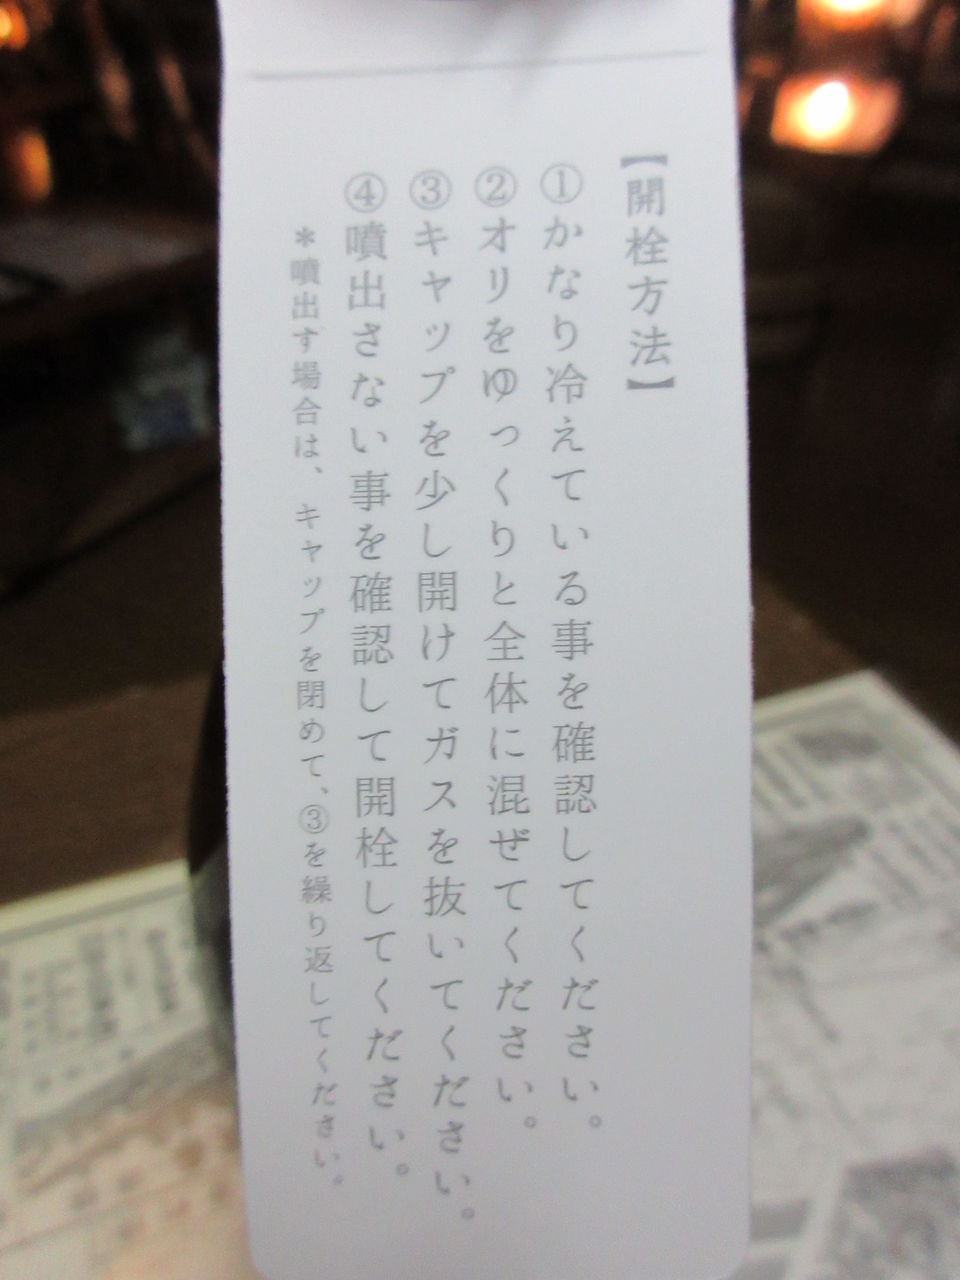 【開栓方法】
①かなり冷えている事を確認してください。
②オリをゆっくりと全体に混ぜてください。
③キャップを少し開けてガスを抜いてください。
④噴出さない事を確認して開栓してください。
＊噴出す場合は、キャップを閉めて、③を繰り返してください。